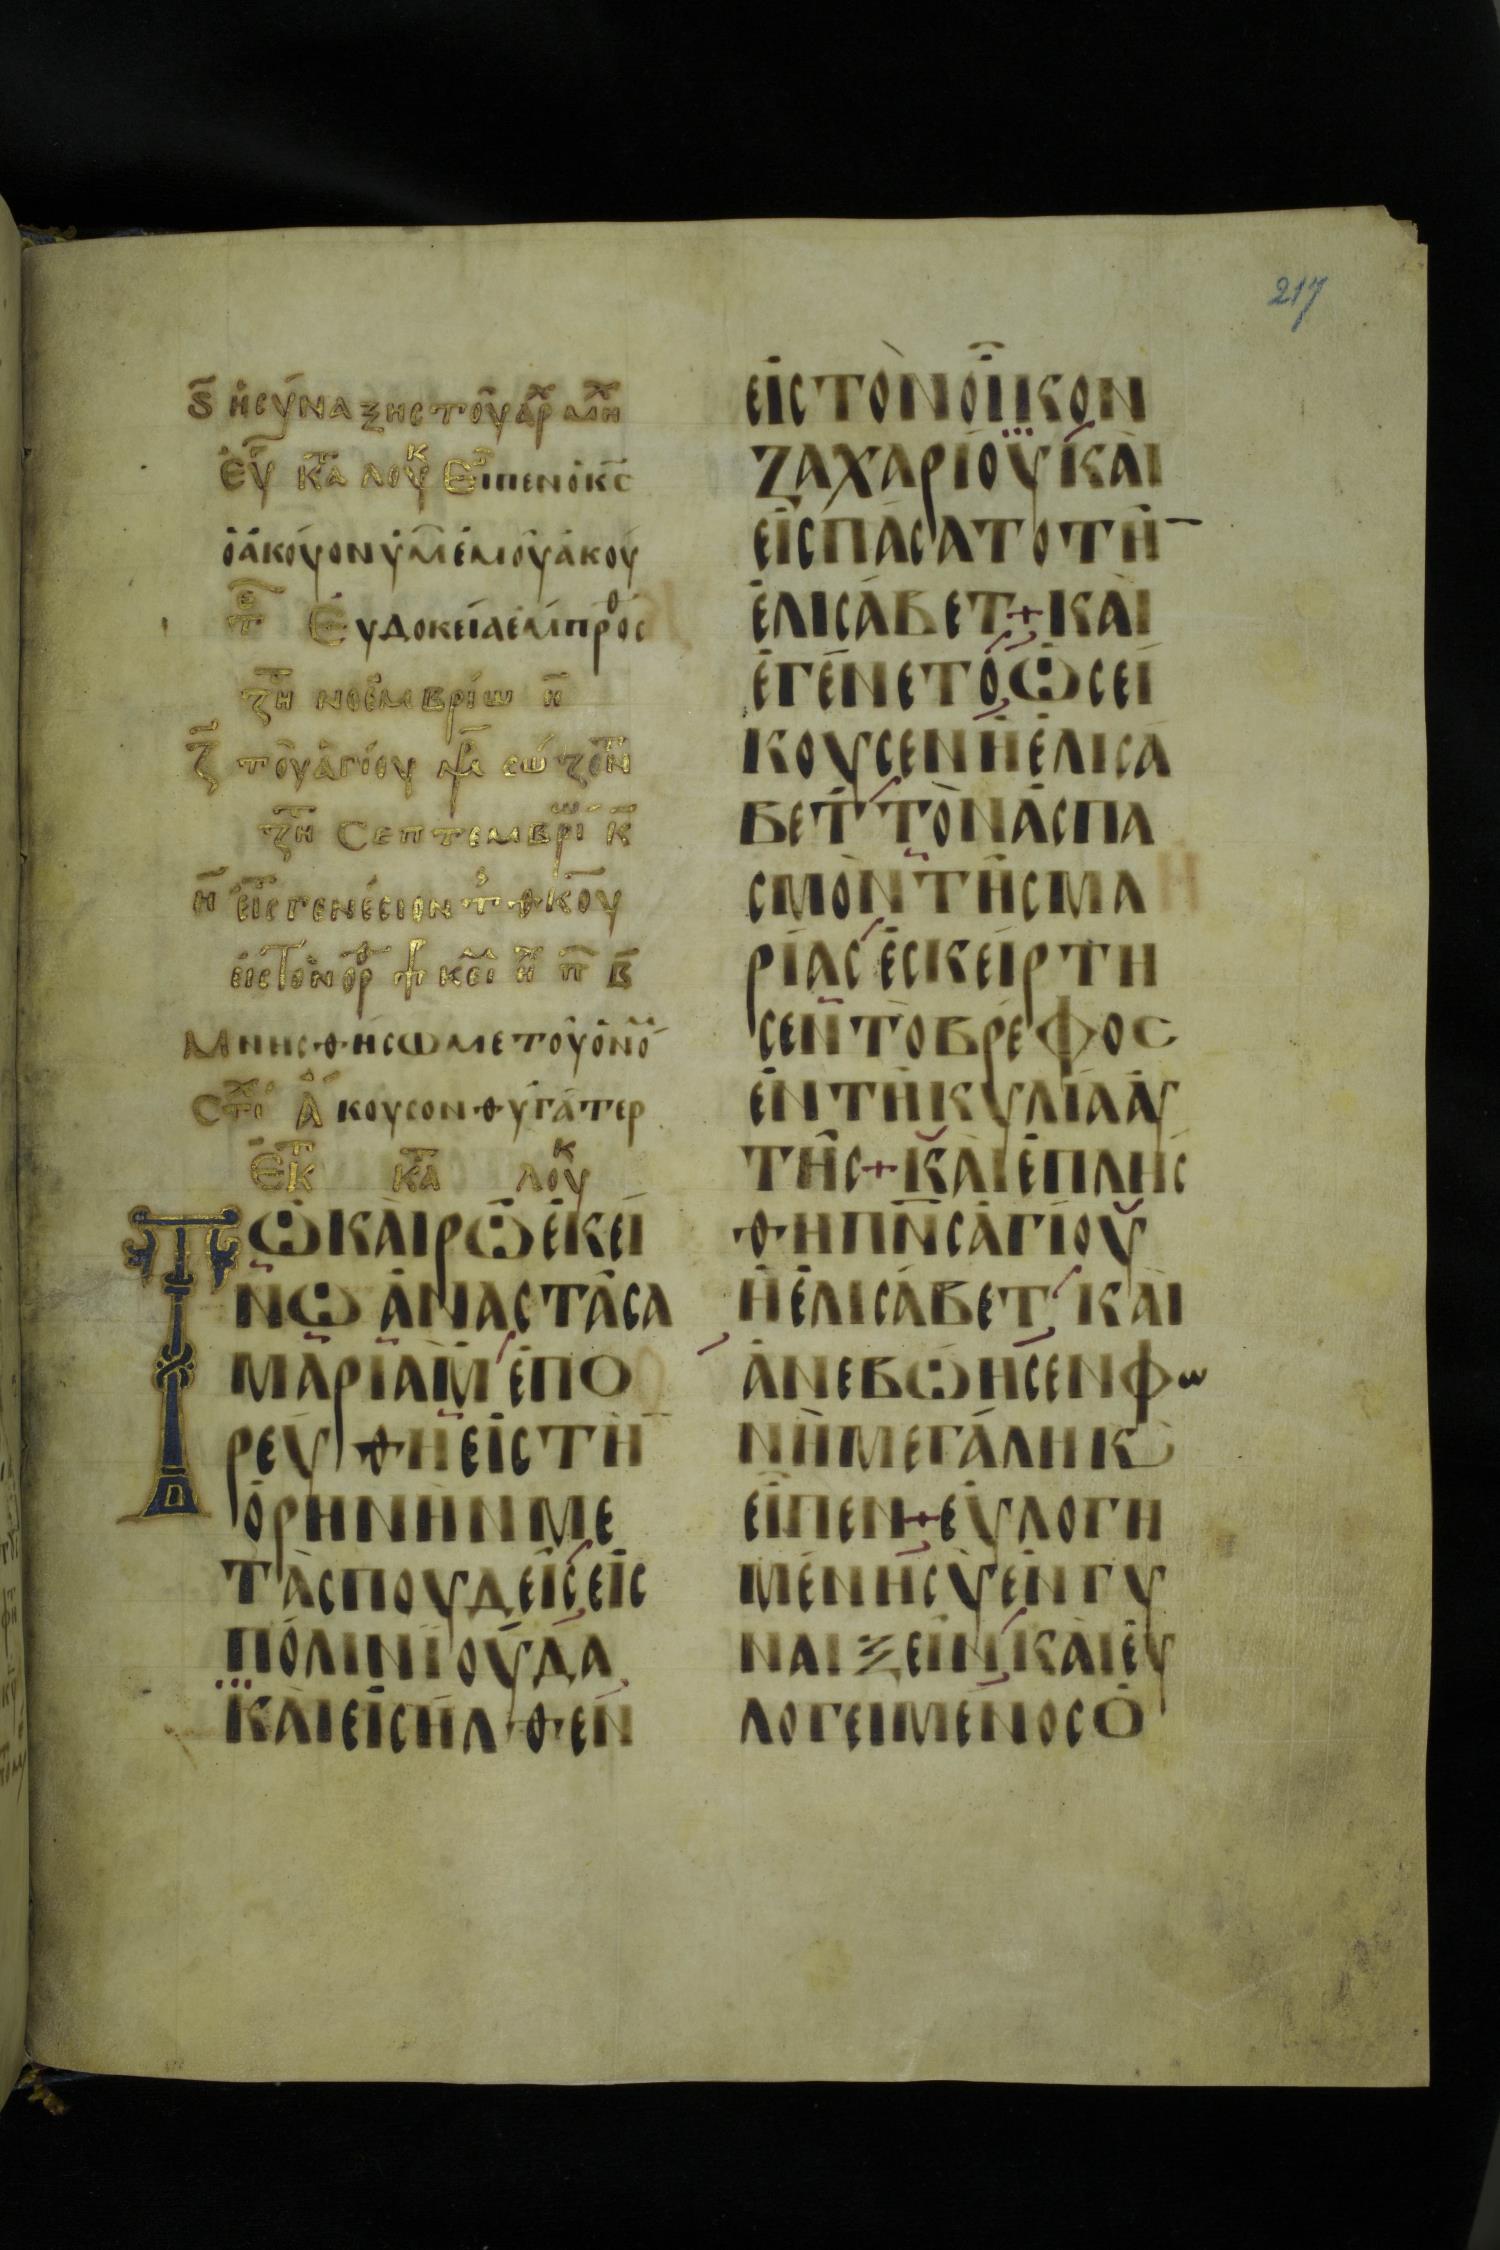 217
ϛ̄ ἡ σύναξης τοῦ ἀρχ μχη
εὐ κατὰ λουκ Εἶπεν ὁ κ̄ς
ὁ ἀκούον ὑμ ἐμοῦ ἀκου
Εὐδοκεία ἔμπροσ
ζτη νοεμβρίω η̄
ζ̄ τοῦ ἁγίου μρ σώζον
ζτη Σεπτεμβρίω κ̄
η̄ εἰς γενέσιον τ θκου
εἰς τὸν ὄρ
Μνησθήσωμε τοῦ ὀνό
Στχι Ἄκουσον θύγατερ
Ἐκ κατὰ λουκ
Τῶ καιρῶ ἐκεί
νω ἀναστᾶσα
μαριὰμ ἐπο
ρεύθη εἰς τὴ̄
ὀρηνὴν με
τὰ σπουδεῖς εἰς
πόλιν ϊούδα
καὶ εἰσῆλθεν
εἰς τὸν οἶκον
ζαχαρίου καὶ
εἰσπάσατο τὴ̄
ἐλισάβετ + καὶ
ἐγένετο ὡσεί
κουσεν ἡ ἐλισά
βετ τὸν ἀσπα
σμὸν τῆς μα
ρίας ἐσκείρτη
σεν τὸ βρέφος
ἐν τῆ κυλία αὐ
τῆς + καὶ ἐπλής
θη π̄ν̄ς ἁγίου
ἡ ἐλισάβετ καὶ
ἀνεβώησεν φω
νῆ μεγάλη κ
εἶπεν + εὐλογη
μένη σὺ ἐν γυ
ναιξεὶν καὶ εὐ
λογειμένος ὁ